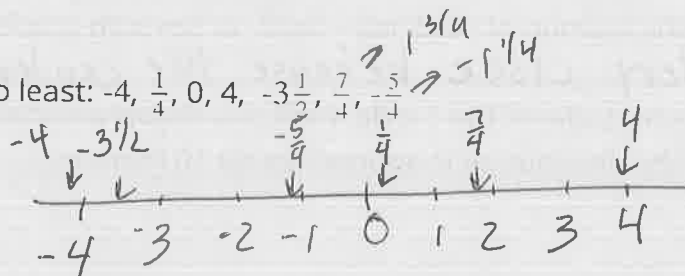 1 3/4
o least: -4, 1/4, 0, 4, -3 1/2, 7/4, -5/4 -1 1/4
-4 -3 1/2 -5/4 1/4 7/4 4
-4 -3 -2 -1 0 1 2 3 4